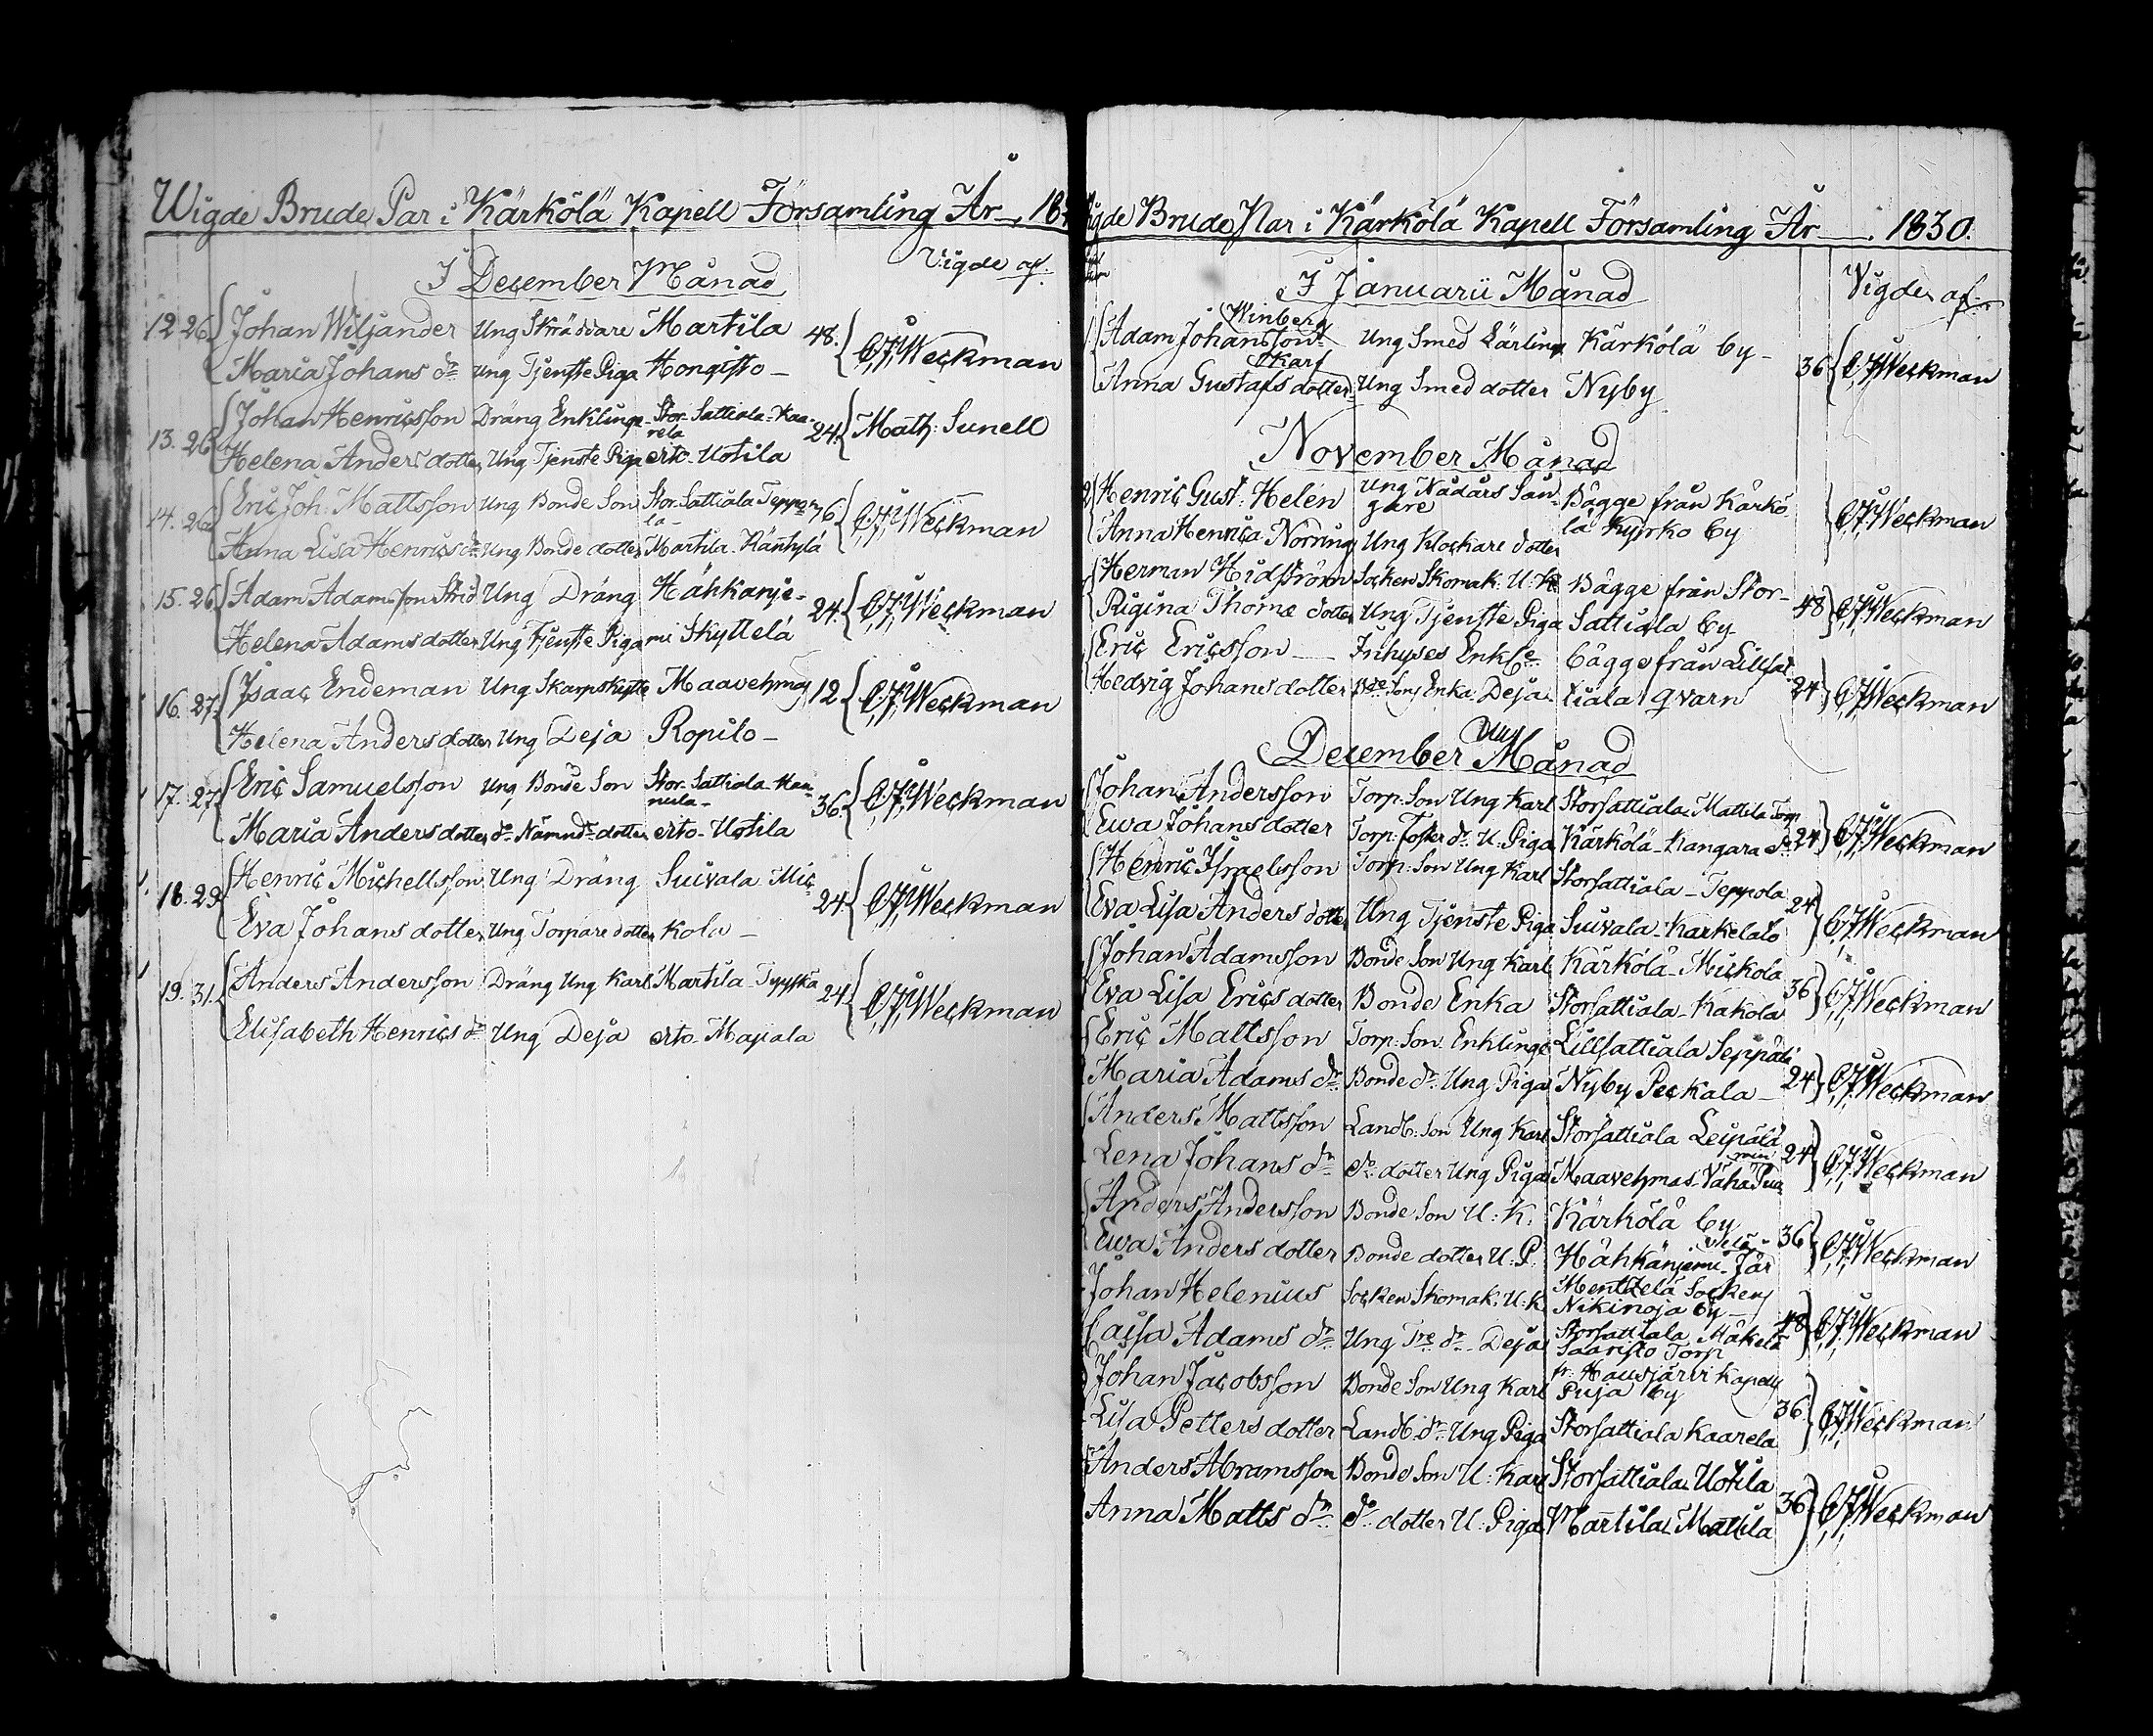 Wigde Brude Par i Kärkölä Kapell Församling År 18
I December Månad Vigde af.
12. 26. Johan Wiljander Ung Skräddare Martila 48. C,J,Weckman
Maria Johans dr Ung Tjenste Piga Hongisto
13. 26 Johan Henricsson Dräng Enklinge Stor Sattiala Kaa-
rela 24. Math: Sunell
Helena Anders dotter Ung Tjenste Piga erto Uotila
14. 26 Eric Joh: Mattsson Ung Bonde Son Stor Sattiala Teppo-
la 76 C,J,Weckman
Anna Lisa Henrics dr Ung Bonde dotter Martila Räntylä
15. 26 Adam Adamsson Ung Dräng Hähkänje- 24. C,J,Weckman
Helena Adams dotter Ung Tjenste Piga mi Skyttelä
16. 27 Isaac Endeman Ung Skarpskytte Maavehmas 12 C,J,Weckman
Helena Anders dotter Ung Deja Ropilo
17. 27. Eric Samuelsson Ung Bonde Son Stor Sattiala Han-
nula 36. C,J,Weckman
Maria Anders dotter do Nämnd dotter erto Uotila
18. 29 Henric Michellsson Ung Dräng Suivala Mic- 24 C,J,Weckman
Eva Johans dotter Ung Torpare dotter kola
19. 31. Anders Andersson Dräng Ung Karl Martila 24 C,J,Weckman
Elisabeth Henrics dr Ung Deja erto Mapala
Wigde Brude Par i Kärkölä Kapell Församling År 1830.
I Januarii Månad Vigde af
Winberg
Adam Johansson Ung Smed Lärling Kärkölä by 36 C,J,Weckman
Skarf
Anna Gustafs dotter Ung Smed dotter Nyby
November Månad
2 Henric Gust: Helén Ung Nådårs Sån- Bägge från Kärkö-
gare C,J,Weckman
Anna Henrica Norring Ung Klockare dotter la Kyrko by
Herman Hidström Socken Skomak: U: K Bägge från Stor- 48 C,J,Weckman
Rigina Thome dotter Ung Tjenste Piga Sattiala by
Eric Ericsson Inhyses Enkl Bägge från Lillsat 24 C,J,Weckman
Hedvig Johans dotter Enka Deja tiala qvarn
December Månad
Johan Andersson Torp: Son Ung Karl Storsattiala Mattila Torp 24 C,J,Weckman
Ewa Johans dotter Torp: Foster dr U: Piga Kärkölä Kangara do
Henric Israelsson Torp: Son Ung Karl Storsattiala Teppola 24 C,J,Weckman
Eva Lisa Anders dotter Ung Tjenste Piga Suivala Karkelalo
Johan Adamsson Bonde Son Ung Karl Kärkölä Mickola 36 C,J,Weckman
Eva Lisa Erics dotter Bonde Enka Storsattiala Kakola
Eric Mattsson Torp: Son Enklinge Lillsattiala Seppälä 24 C,J,Weckman
Maria Adams dr Bonde dr Ung Piga Nyby Peckala
Anders Mattsson Landb: Son Ung Karl Storsattiala Leipälä 24 C,J,Weckman
Lena Johans dr do dotter Ung Piga Maavehmas Vähä
Anders Andersson Bonde Son U: K: Kärkölä by 36 C,J,Weckman
Ewa Anders dotter Bonde dotter U: P: Hähkänjemi Jär
Johan Helenius Socken Skomak: U: K Mentzelä Socken
Nikinoja by 48 C,J,Weckman
Caisa Adams dr Ung Tre dr Deja Storsattiala Mäkelä
Saaristo Torp
Johan Jacobsson Bonde Son Ung Karl fr. Hausjärvi Kapell
Puja by 36 C,J,Weckman
Lisa Petters dotter Landb: dr Ung Piga Storsattiala Kaarela
Anders Abramsson Bonde Son U: Karl Storsattiala Uotila 36 C,J,Weckman
Anna Matts dr do dotter U: Piga Martila Mattila